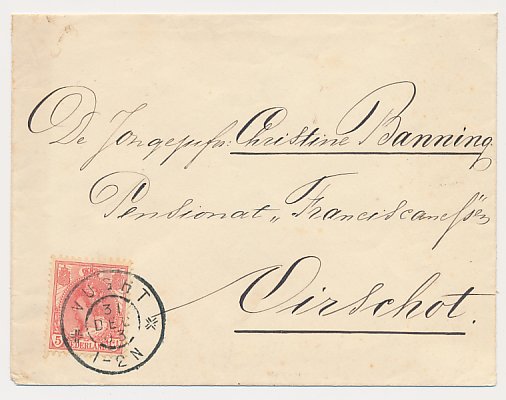 De Jongejufr: Christine Banning.
Pensionat „Franciscanessen
Oirschot.
VUGHT
31
DEC
1-2N
5
NEDERLAND